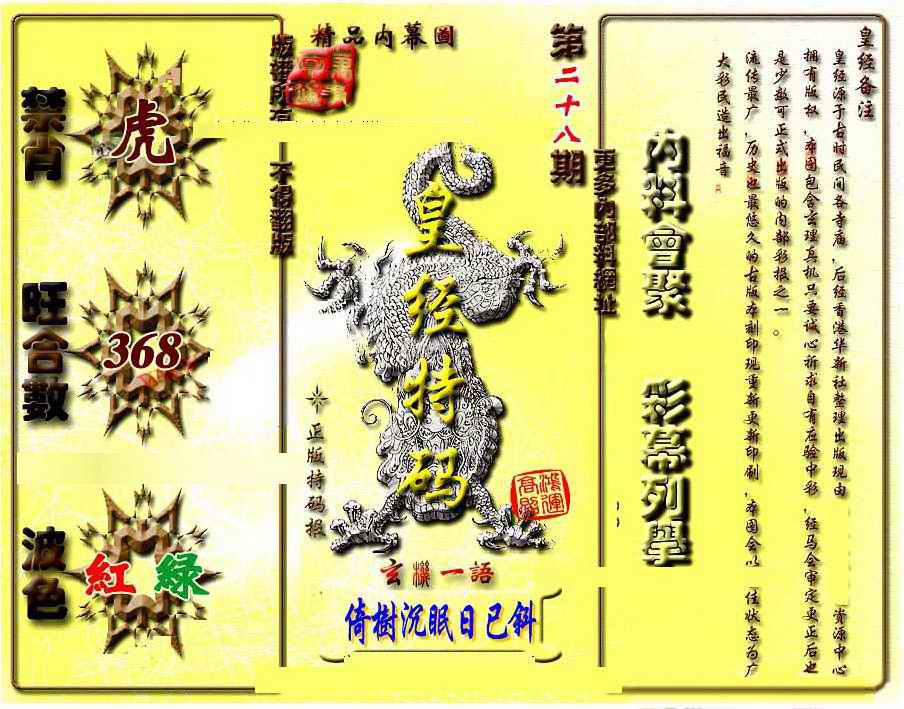 皇经备注
皇经源于古时民间各寺庙，后经香港华新社整理出版现由 资源中心
拥有版权，本图包含玄理真机只要诚心祈求自有应验中彩，经马会审定更正后也
是少数可正式出版的内部彩报之一。
流传最广，历史也最悠久的古版本刻印现重新更新印刷，本图会以 佳状态为广
大彩民造出福音
内料會聚
彩幕列舉
更多内部料網址
第二十八期
精品内幕圖
版權所有
不得翻版
皇经特码
正版特码报
鸿運
高照
玄機一語
倚樹沉眠日已斜
禁肖
虎
旺合數
368
波色
紅 綠